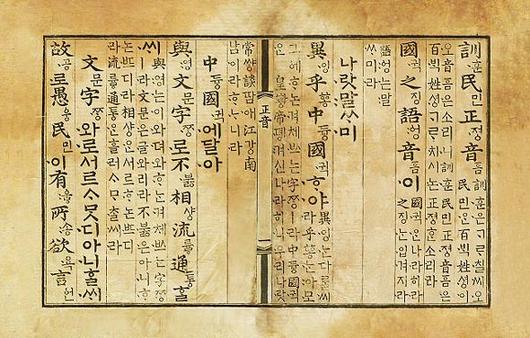 訓훈民민正졍音ᅙᅳᆷ
訓훈은ᄀᆞᄅᆞ칠씨오民민ᄋᆞᆫ百ᄇᆡᆨ姓셩이
오音ᅙᅳᆷ은소리니訓훈民민正졍音ᅙᅳᆷ은
百ᄇᆡᆨ姓셩ᄀᆞᄅᆞ치시논正졍ᄒᆞᆫ소리라
國귁之징語ᅌᅥᆼ音ᅙᅳᆷ이
國귁ᄋᆞᆫ나라히라
之징ᄂᆞᆫ입겨지라
語ᅌᅥᆼ는말
ᄊᆞ미라
나랏말ᄊᆞ미
異잉乎ᅘᅩᆼ中듕國귁ᄒᆞ야
異잉ᄂᆞᆫ다ᄅᆞᆯ씨
라乎ᅘᅩᆼᄂᆞᆫ아모
그ᅌᅦᄒᆞ논겨체ᄡᅳ는字ᄍᆞᆼㅣ라中듕國귁
ᄋᆞᆫ皇황帝뎽겨신나라히니우리나랏
正音
常쌰ᇰ談땀애江강南
남이라ᄒᆞᄂᆞ니라
中듕國귁에달아
與영文문字ᄍᆞᆼ로不붏相샹流륳通통ᄒᆞᆯ
ᄊᆡ
與영는이와뎌와ᄒᆞᄂᆞᆫ겨체ᄡᅳ는字ᄍᆞᆼ
ㅣ라文문은글와리라不붏은아니ᄒᆞ
논ᄠᅳ디라相샹ᄋᆞᆫ서르ᄒᆞ논ᄠᅳ디
라流륳通통ᄋᆞᆫ흘러ᄉᆞᄆᆞᄎᆞᆯ씨라
文문字ᄍᆞᆼ와로서르ᄉᆞᄆᆞᆺ디아니ᄒᆞᆯᄊᆡ
故공로愚ᅌᅮᆼ民민이有ᅌᅮᇢ所송欲욕言ᅌᅥᆫ